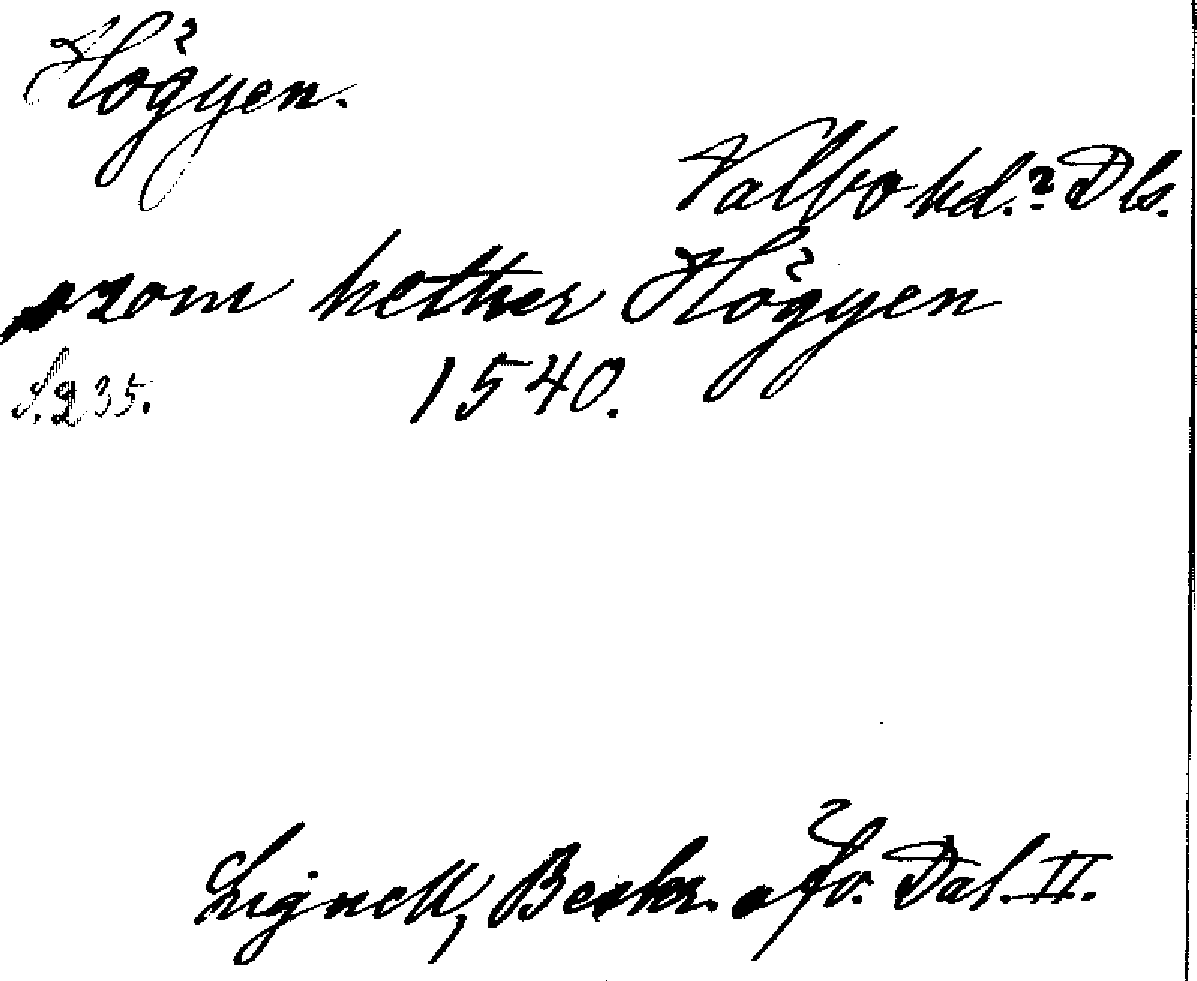 Högyen.
Valbo hd.? Dls.
som hether Högyen
S. 235. 1540.
Lignell, Beskr. öfv. Dal. II.